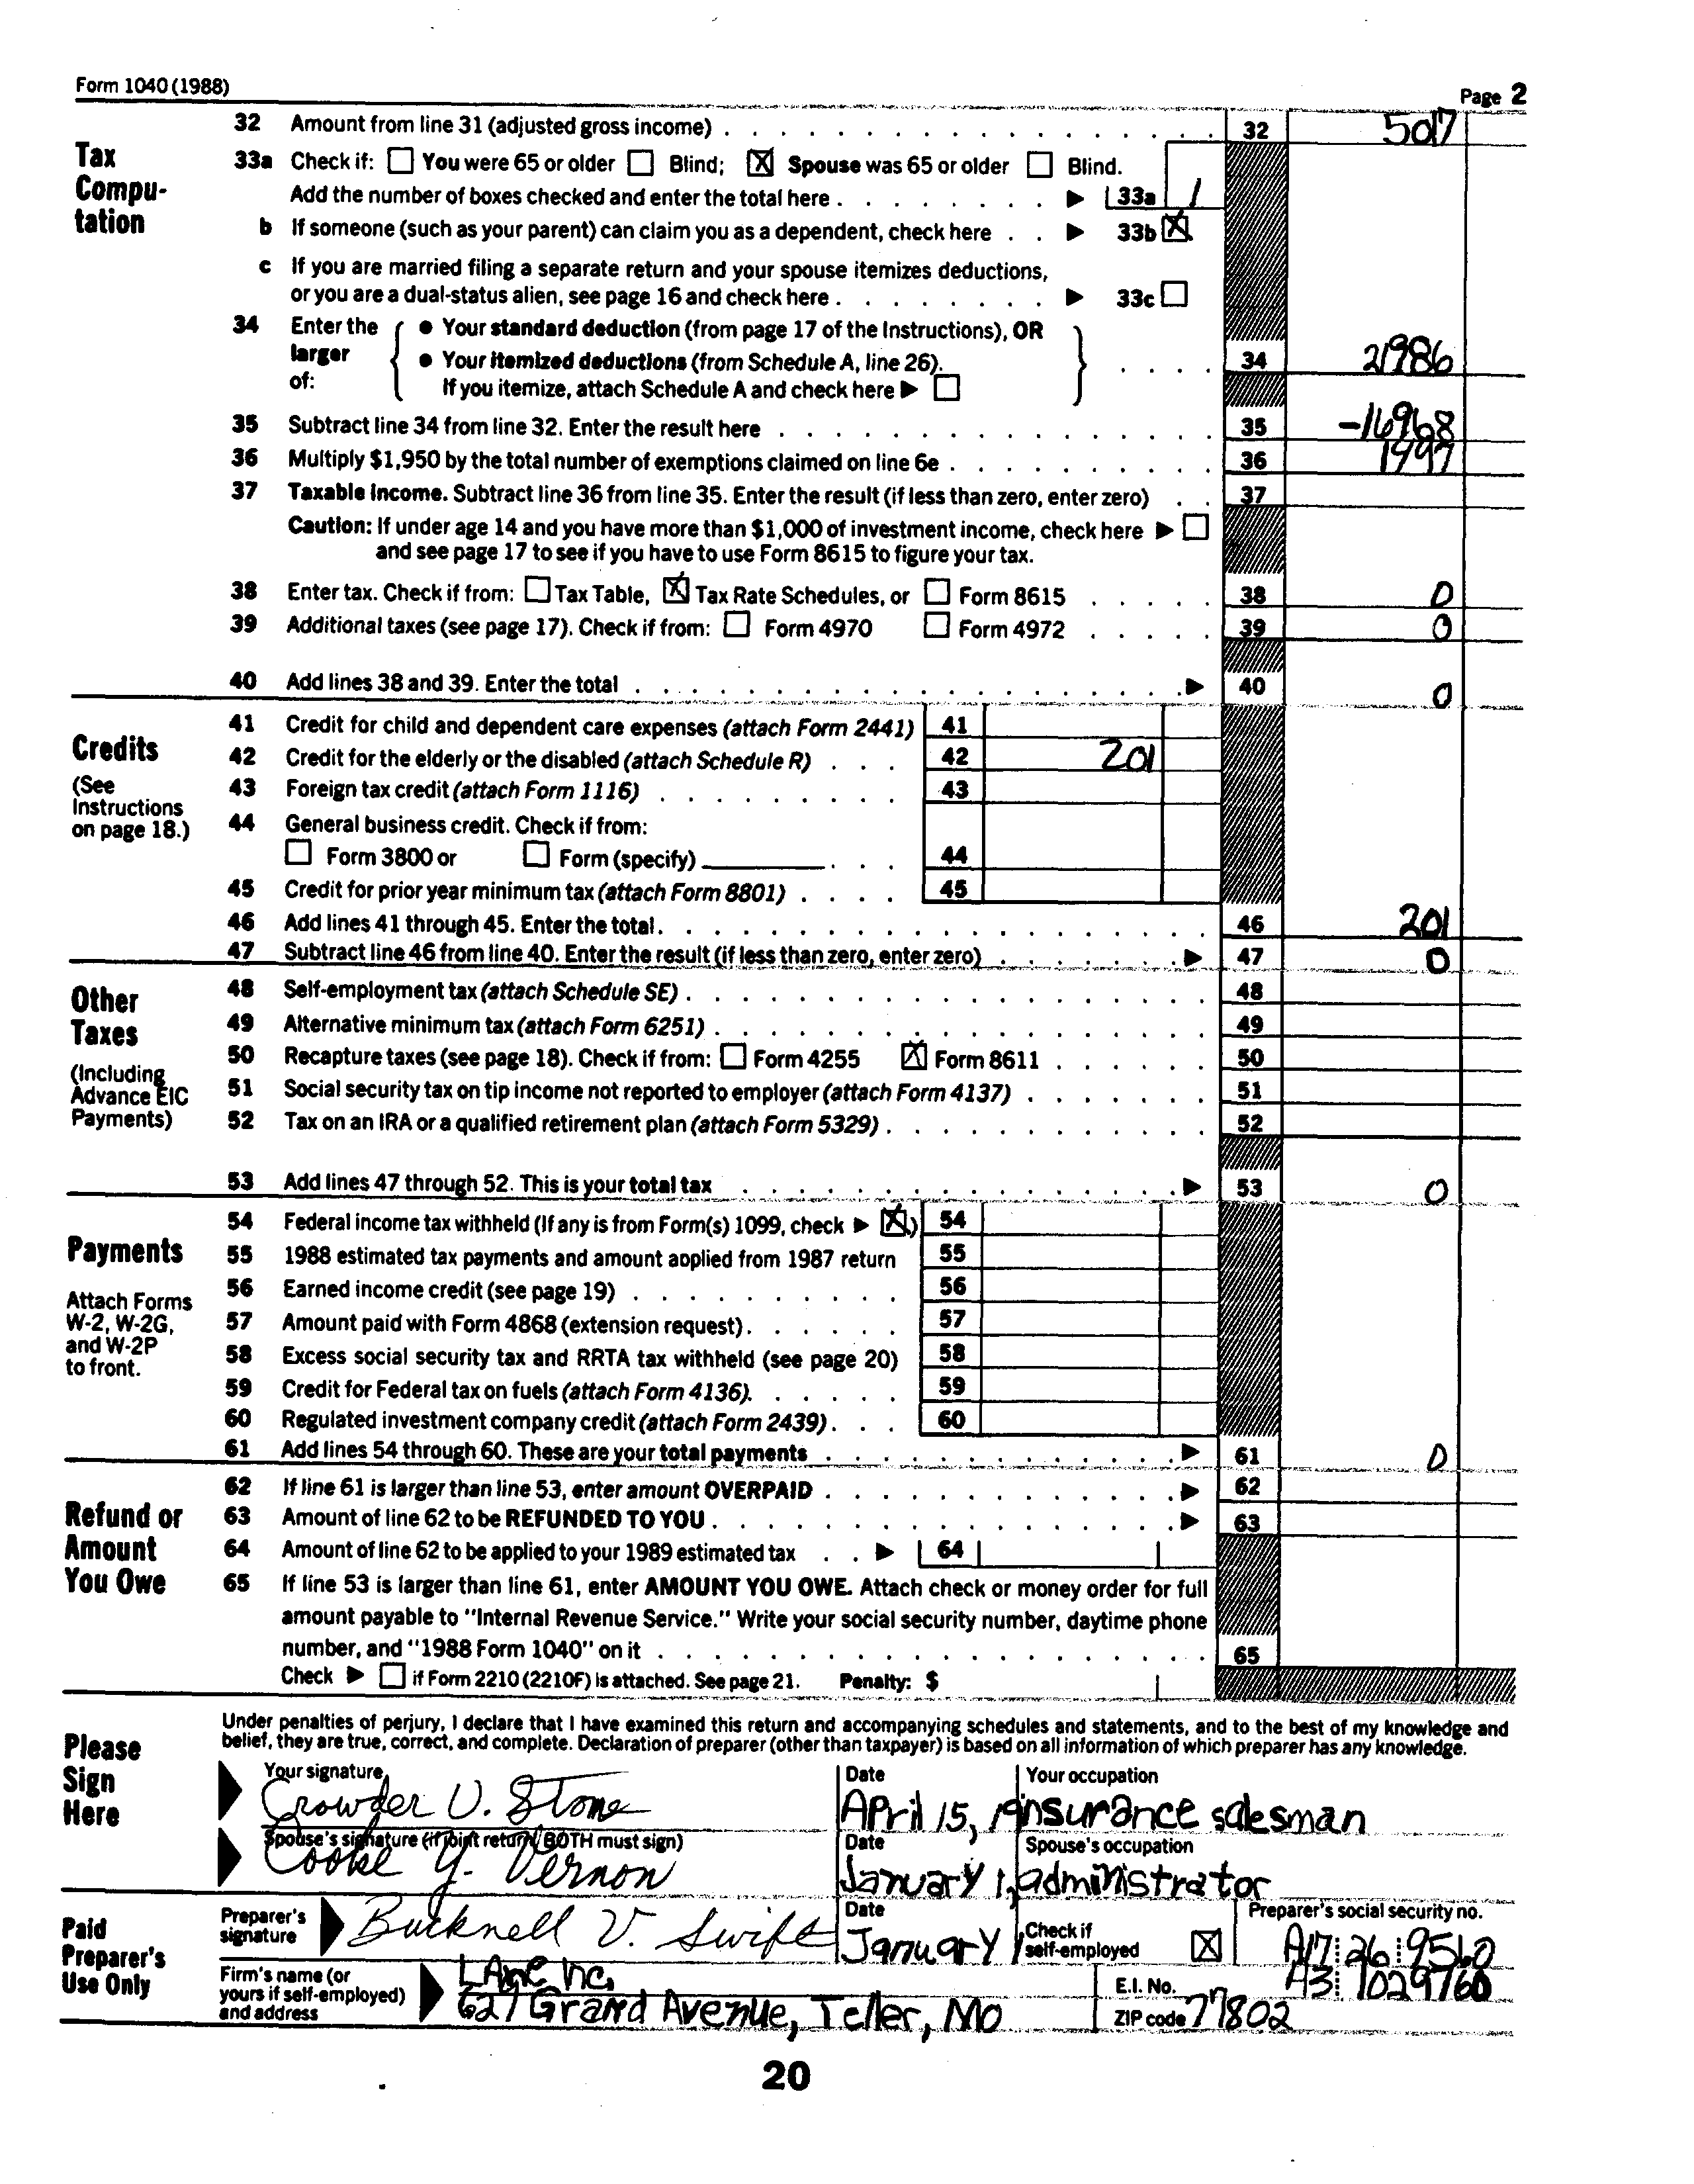 Form 1040 (1988)
Page 2
Tax Computation
32 Amount from line 31 (adjusted gross income) 32 5017
33a Check if: You were 65 or older Blind; X Spouse was 65 or older Blind.
Add the number of boxes checked and enter the total here 33a 1
b If someone (such as your parent) can claim you as a dependent, check here 33b X
c If you are married filing a separate return and your spouse itemizes deductions,
or you are a dual-status alien, see page 16 and check here 33c
34 Enter the larger of: • Your standard deduction (from page 17 of the Instructions), OR
• Your itemized deductions (from Schedule A, line 26). 34 21986
If you itemize, attach Schedule A and check here
35 Subtract line 34 from line 32. Enter the result here 35 -16968
36 Multiply $1,950 by the total number of exemptions claimed on line 6e 36 1997
37 Taxable income. Subtract line 36 from line 35. Enter the result (if less than zero, enter zero) 37
Caution: If under age 14 and you have more than $1,000 of investment income, check here
and see page 17 to see if you have to use Form 8615 to figure your tax.
38 Enter tax. Check if from: Tax Table, X Tax Rate Schedules, or Form 8615 38 0
39 Additional taxes (see page 17). Check if from: Form 4970 Form 4972 39 0
40 Add lines 38 and 39. Enter the total 40 0
Credits
(See Instructions on page 18.)
41 Credit for child and dependent care expenses (attach Form 2441) 41
42 Credit for the elderly or the disabled (attach Schedule R) 42 201
43 Foreign tax credit (attach Form 1116) 43
44 General business credit. Check if from:
Form 3800 or Form (specify) 44
45 Credit for prior year minimum tax (attach Form 8801) 45
46 Add lines 41 through 45. Enter the total 46 201
47 Subtract line 46 from line 40. Enter the result (if less than zero, enter zero) 47 0
Other Taxes
(Including Advance EIC Payments)
48 Self-employment tax (attach Schedule SE) 48
49 Alternative minimum tax (attach Form 6251) 49
50 Recapture taxes (see page 18). Check if from: Form 4255 X Form 8611 50
51 Social security tax on tip income not reported to employer (attach Form 4137) 51
52 Tax on an IRA or a qualified retirement plan (attach Form 5329) 52
53 Add lines 47 through 52. This is your total tax 53 0
Payments
Attach Forms W-2, W-2G, and W-2P to front.
54 Federal income tax withheld (If any is from Form(s) 1099, check X) 54
55 1988 estimated tax payments and amount applied from 1987 return 55
56 Earned income credit (see page 19) 56
57 Amount paid with Form 4868 (extension request) 57
58 Excess social security tax and RRTA tax withheld (see page 20) 58
59 Credit for Federal tax on fuels (attach Form 4136) 59
60 Regulated investment company credit (attach Form 2439) 60
61 Add lines 54 through 60. These are your total payments 61 0
Refund or Amount You Owe
62 If line 61 is larger than line 53, enter amount OVERPAID 62
63 Amount of line 62 to be REFUNDED TO YOU 63
64 Amount of line 62 to be applied to your 1989 estimated tax 64
65 If line 53 is larger than line 61, enter AMOUNT YOU OWE. Attach check or money order for full
amount payable to "Internal Revenue Service." Write your social security number, daytime phone
number, and "1988 Form 1040" on it 65
Check if Form 2210 (2210F) is attached. See page 21. Penalty: $
Please Sign Here
Under penalties of perjury, I declare that I have examined this return and accompanying schedules and statements, and to the best of my knowledge and
belief, they are true, correct, and complete. Declaration of preparer (other than taxpayer) is based on all information of which preparer has any knowledge.
Your signature Date Your occupation
Crowder V. Stone April 15, insurance salesman
Spouse's signature (if joint return, BOTH must sign) Date Spouse's occupation
Cooke Y. Vernon January 1, administrator
Paid Preparer's Use Only
Preparer's signature Date Check if self-employed Preparer's social security no.
Bucknell V. Swift January 1 X A17 26 9560
Firm's name (or yours if self-employed) and address E.I. No. ZIP code
LANE Inc. A3 1029760
627 Grand Avenue, Teller, MO 77802
20